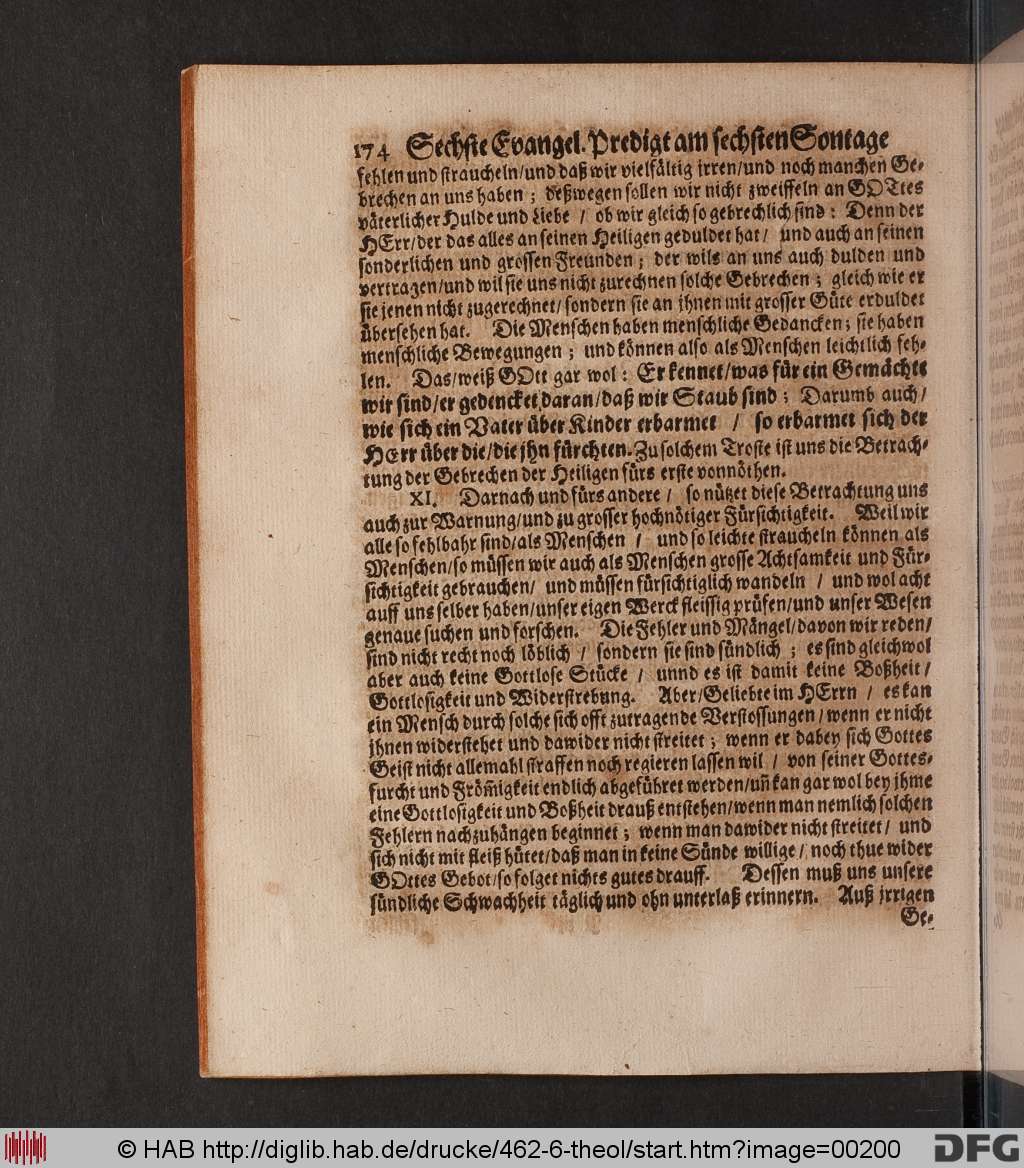 174 Sechste Evangel. Predigt am sechsten Sontage
fehlen und straucheln/und daß wir vielfältig irren/und noch manchen Ge-
brechen an uns haben; deßwegen sollen wir nicht zweiffeln an GOTtes
väterlicher Hulde und Liebe / ob wir gleich so gebrechlich sind: Denn der
HErr/der das alles an seinen Heiligen geduldet hat/ und auch an seinen
sonderlichen und grossen Freunden; der wils an uns auch dulden und
vertragen/und wil sie uns nicht zurechnen solche Gebrechen; gleich wie er
sie jenen nicht zugerechnet/sondern sie an jhnen mit grosser Güte erduldet
übersehen hat. Die Menschen haben menschliche Gedancken; sie haben
menschliche Bewegungen; und können also als Menschen leichtlich feh-
len. Das/weiß GOtt gar wol: Er kennet/was für ein Gemächte
wir sind/er gedencket daran/daß wir Staub sind; Darumb auch/
wie sich ein Vater über Kinder erbarmet / so erbarmet sich der
HErr über die/die jhn fürchten. Zu solchem Troste ist uns die Betrach-
tung der Gebrechen der Heiligen fürs erste vonnöthen.
XI. Darnach und fürs andere / so nützet diese Betrachtung uns
auch zur Warnung/und zu grosser hochnötiger Fürsichtigkeit. Weil wir
alle so fehlbahr sind/als Menschen / und so leichte straucheln können als
Menschen/so müssen wir auch als Menschen grosse Achtsamkeit und Für-
sichtigkeit gebrauchen/ und müssen fürsichtiglich wandeln / und wol acht
auff uns selber haben/unser eigen Werck fleissig prüfen/und unser Wesen
genaue suchen und forschen. Die Fehler und Mängel/davon wir reden/
sind nicht recht noch löblich / sondern sie sind sündlich; es sind gleichwol
aber auch keine Gottlose Stücke / unnd es ist damit keine Boßheit/
Gottlosigkeit und Widerstrebung. Aber/Geliebte im HErrn / es kan
ein Mensch durch solche sich offt zutragende Verstossungen/wenn er nicht
jhnen widerstehet und dawider nicht streitet; wenn er dabey sich Gottes
Geist nicht allemahl straffen noch regieren lassen wil / von seiner Gottes-
furcht und From̃igkeit endlich abgeführet werden/uñ kan gar wol bey jhme
eine Gottlosigkeit und Boßheit drauß entstehen/wenn man nemlich solchen
Fehlern nachzuhängen beginnet; wenn man dawider nicht streitet/ und
sich nicht mit fleiß hütet/daß man in keine Sünde willige/noch thue wider
GOttes Gebot/so folget nichts gutes drauff. Dessen muß uns unsere
sündliche Schwachheit täglich und ohn unterlaß erinnern. Auß jrrigen
Ge-
© HAB http://diglib.hab.de/drucke/462-6-theol/start.htm?image=00200
DFG